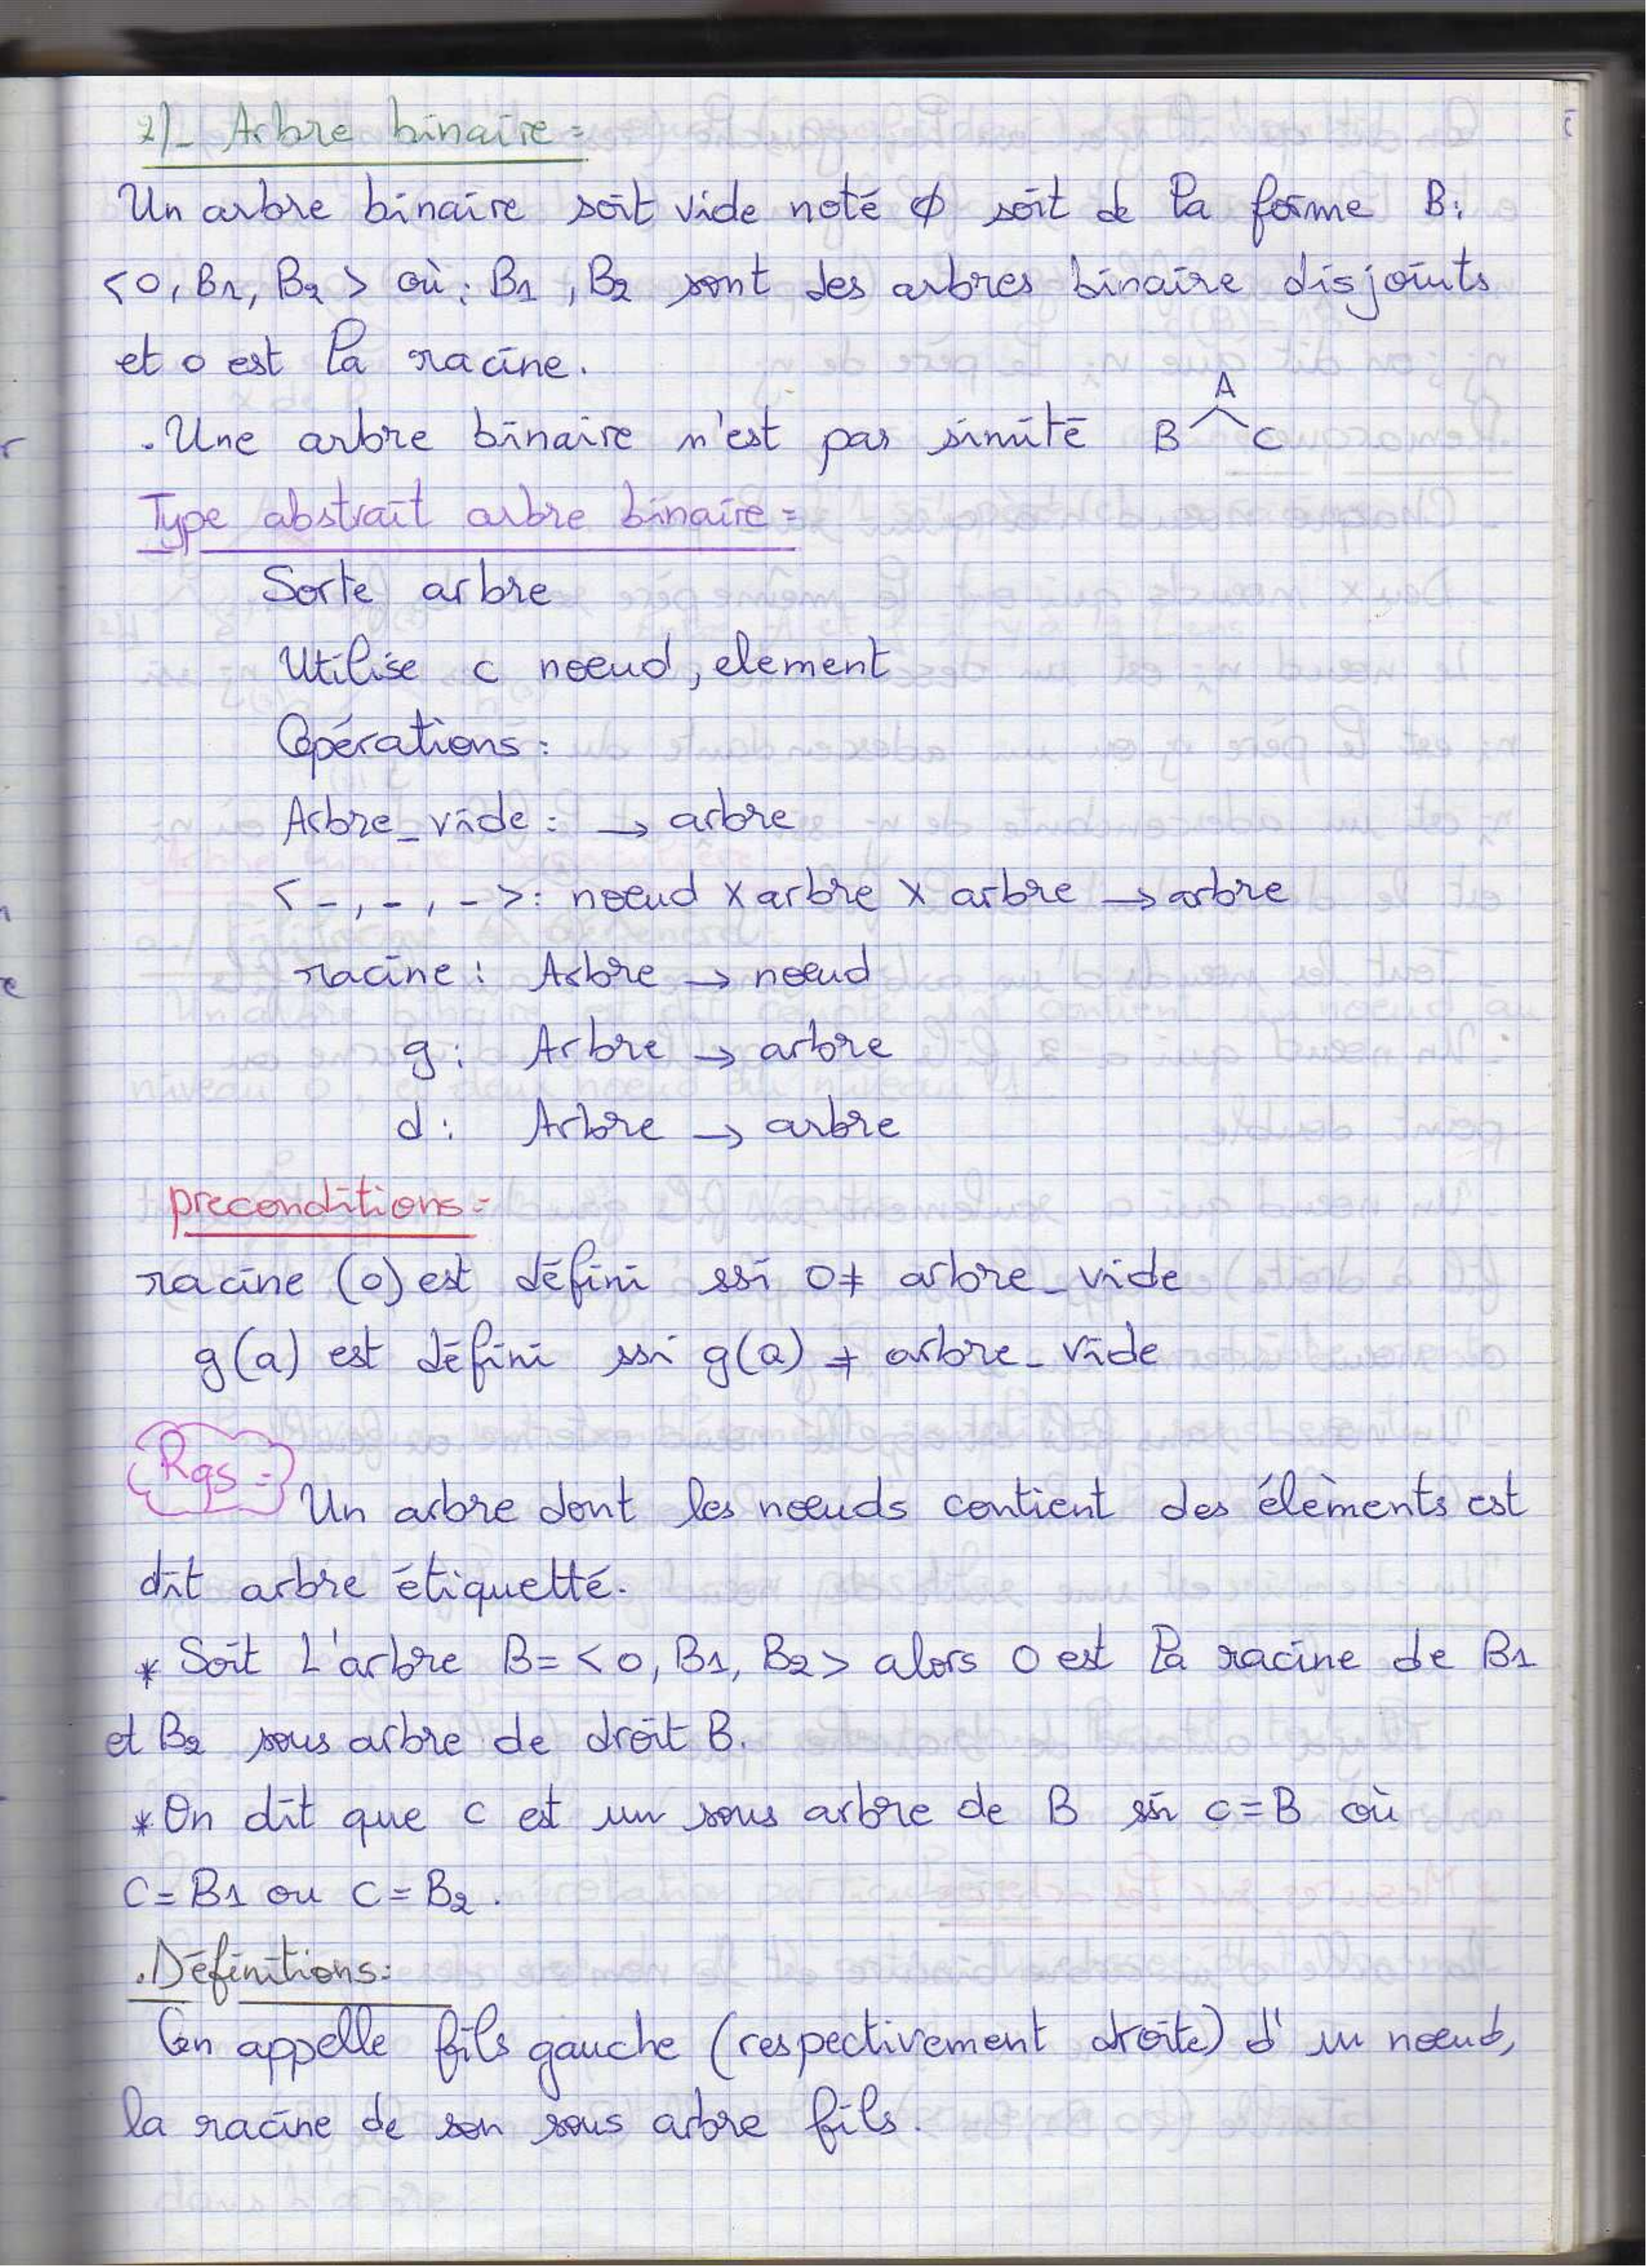 2)_ Arbre binaire =
Un arbre binaire soit vide noté ϕ soit de la forme B:
<0, B1, B2 > où: B1, B2 sont des arbres binaire disjoints
et o est la racine.
. Une arbre binaire n'est pas simité
A
B C
Type abstrait arbre binaire =
Sorte arbre
Utilise c noeud, element
Opérations :
Arbre_vide : → arbre
< _, _, _ >: noeud x arbre x arbre → arbre
racine : Arbre → noeud
g : Arbre → arbre
d : Arbre → arbre
preconditions =
racine (o) est défini ssi O ≠ arbre_vide
g(a) est défini ssi g(a) ≠ arbre_vide
Rqs =
Un arbre dont les noeuds contient des élèments est
dit arbre étiquetté.
* Soit L'arbre B = < 0, B1, B2 > alors O est la racine de B1
et B2 sous arbre de droit B.
* On dit que c est un sous arbre de B ssi c = B où
C = B1 ou C = B2 .
. Définitions :
On appelle fils gauche (respectivement droite) d' un noeud,
la racine de son sous arbre fils.